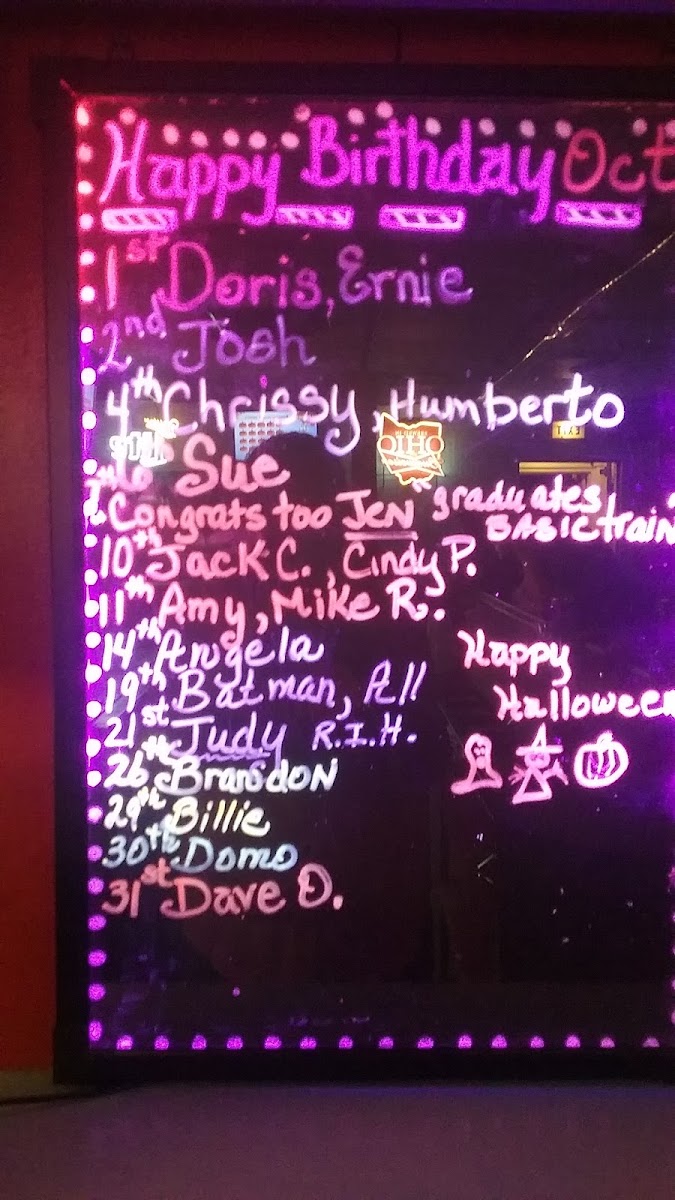 Happy Birthday Oct
1st Doris, Ernie
2nd Josh
4th Chrissy, Humberto
OHIO
EXIT
6th Sue
Congrats too JEN "graduates,
BASIC train
10th Jack C., Cindy P.
11th Amy, Mike R.
14th Angela
Happy
19th Batman, All
Halloween
21st Judy R.I.H.
26th Brandon
29th Billie
30th Domo
31st Dave O.